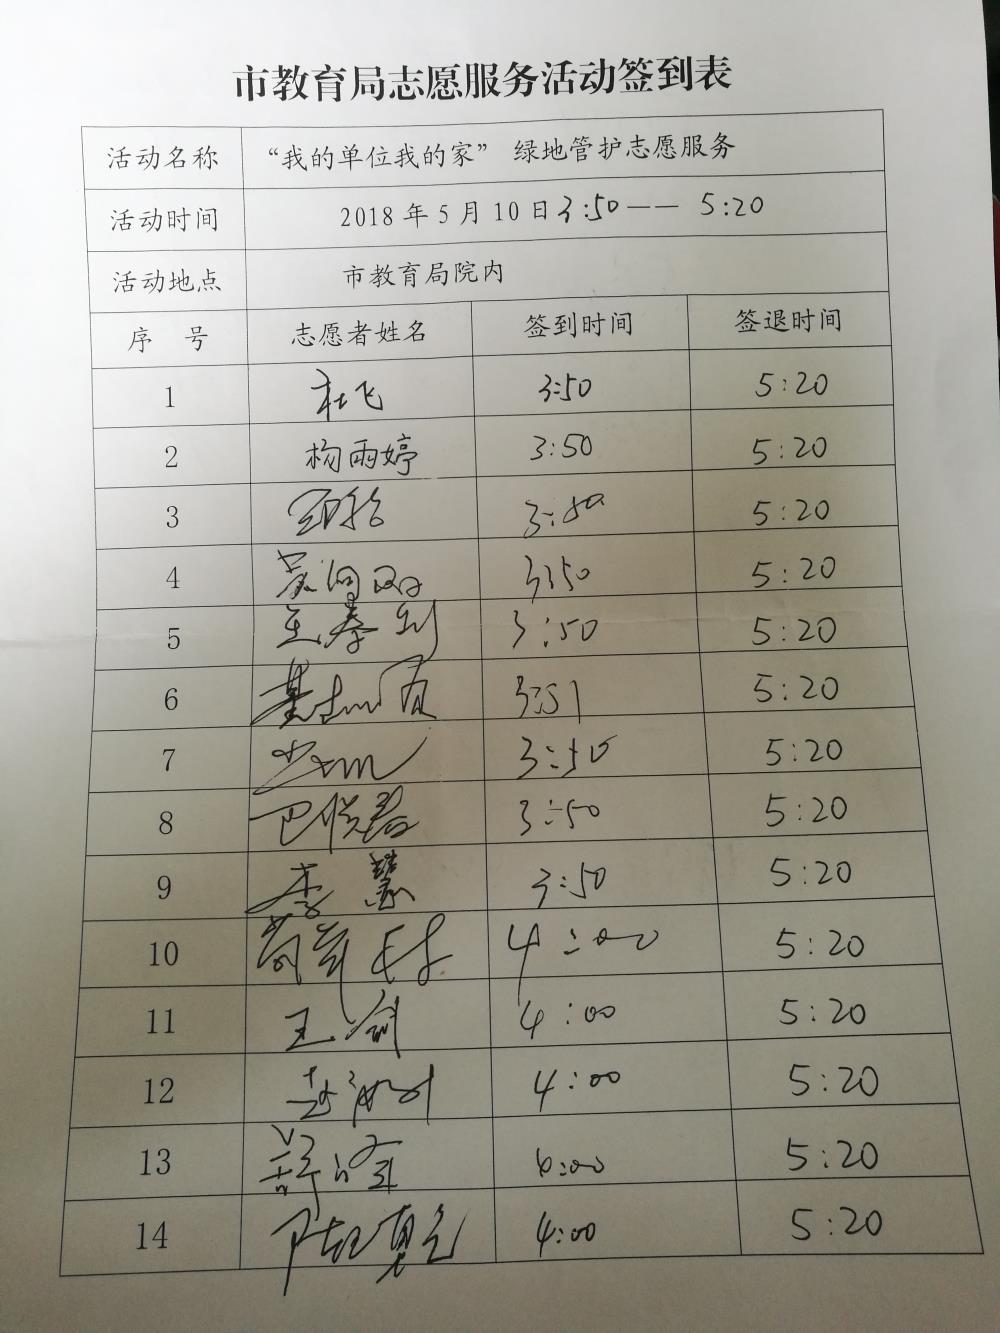 市教育局志愿服务活动签到表
活动名称 “我的单位我的家” 绿地管护志愿服务
活动时间 2018年5月10日3:50—— 5:20
活动地点 市教育局院内
序 号 志愿者姓名 签到时间 签退时间
1 杜飞 3:50 5:20
2 杨雨婷 3:50 5:20
3 3:50 5:20
4 3:50 5:20
5 王春 3:50 5:20
6 3:51 5:20
7 3:50 5:20
8 3:50 5:20
9 李慧 3:50 5:20
10 4:00 5:20
11 王剑 4:00 5:20
12 4:00 5:20
13 5:20
14 4:00 5:20